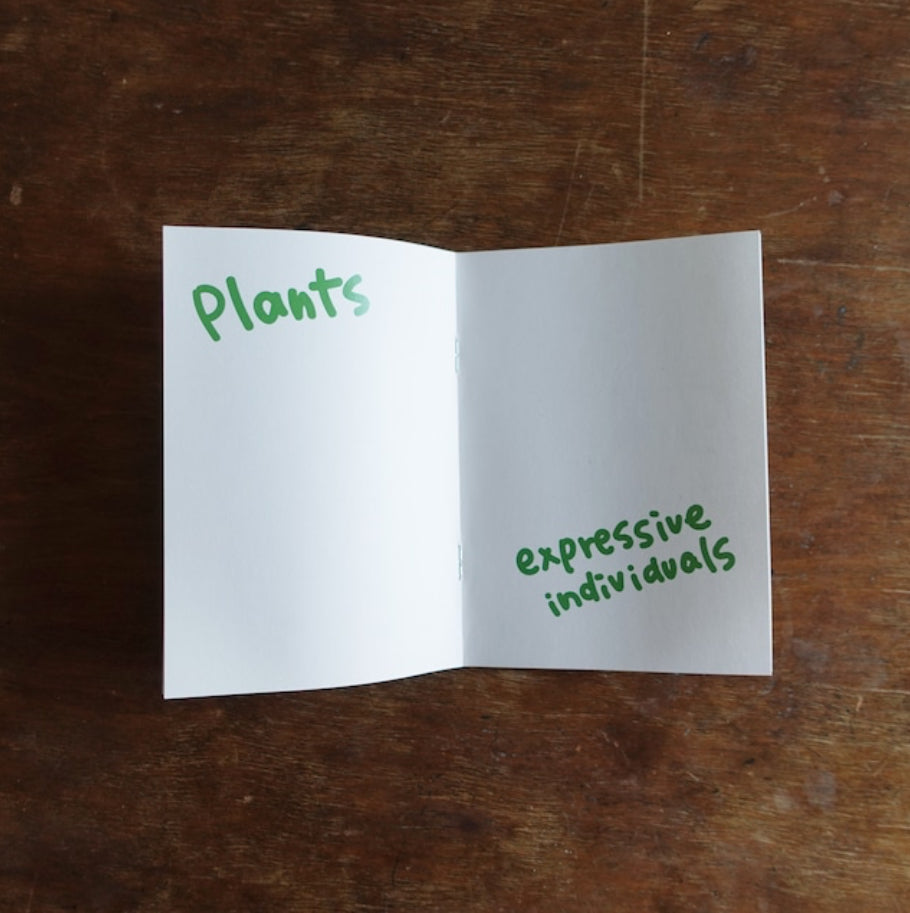 Plants
expressive
individuals